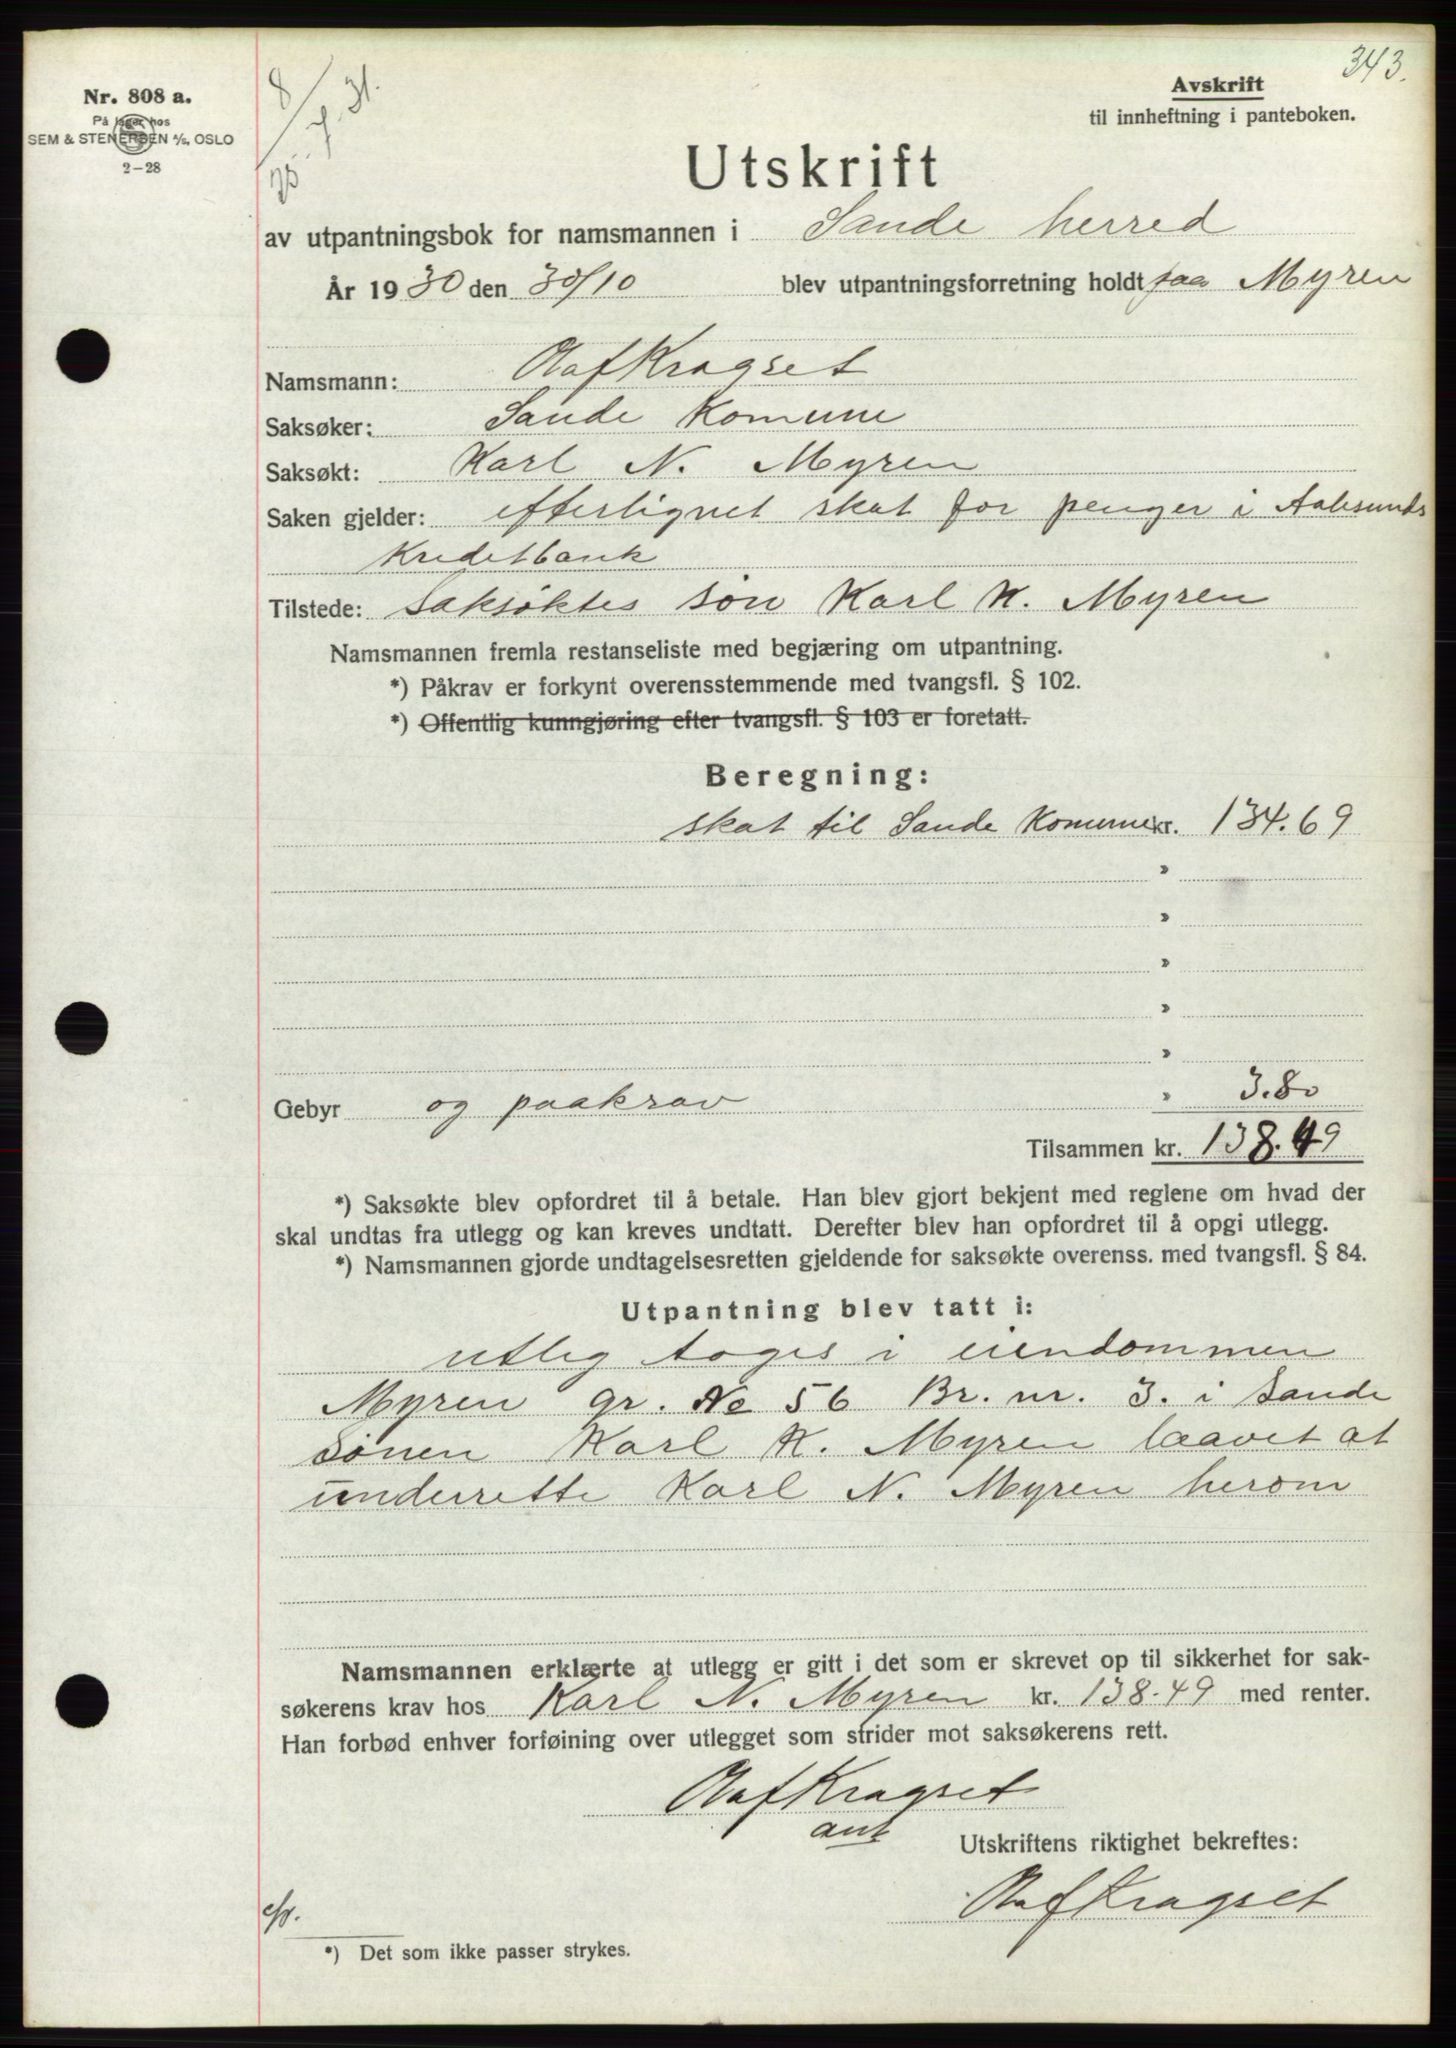 343.
Nr. 808 a.
På lager hos
SEM & STENERSEN A/S, OSLO
2-28
8/7. 31.
Avskrift
til innheftning i panteboken.
Utskrift
av utpantningsbok for namsmannen i Sande herred
År 1930 den 30/10 blev utpantningsforretning holdt paa Myren
Namsmann: Olaf Kragset
Saksøker: Sande Komune
Saksøkt: Karl N. Myren
Saken gjelder: efterlignet skat for penger i Aalesunds
Kreditbank
Tilstede: Saksøktes søn Karl K. Myren
Namsmannen fremla restanseliste med begjæring om utpantning.
*) Påkrav er forkynt overensstemmende med tvangsfl. § 102.
*) Offentlig kunngjøring efter tvangsfl. § 103 er foretatt.
Beregning:
skat til Sande Komune kr. 134.69
»
»
»
»
»
Gebyr og paakrav » 3.80
Tilsammen kr. 138.49
*) Saksøkte blev opfordret til å betale. Han blev gjort bekjent med reglene om hvad der
skal undtas fra utlegg og kan kreves undtatt. Derefter blev han opfordret til å opgi utlegg.
*) Namsmannen gjorde undtagelsesretten gjeldende for saksøkte overenss. med tvangsfl. § 84.
Utpantning blev tatt i:
utleg toges i eiendommen
Myren gr. No 56 Br. nr. 3. i Sande
Sønen Karl K. Myren laavet at
underrette Karl N. Myren herom
Namsmannen erklærte at utlegg er gitt i det som er skrevet op til sikkerhet for sak-
søkerens krav hos Karl N. Myren kr. 138.49 med renter.
Han forbød enhver forføining over utlegget som strider mot saksøkerens rett.
Olaf Kragset
ant
Utskriftens riktighet bekreftes:
Olaf Kragset
*) Det som ikke passer strykes.